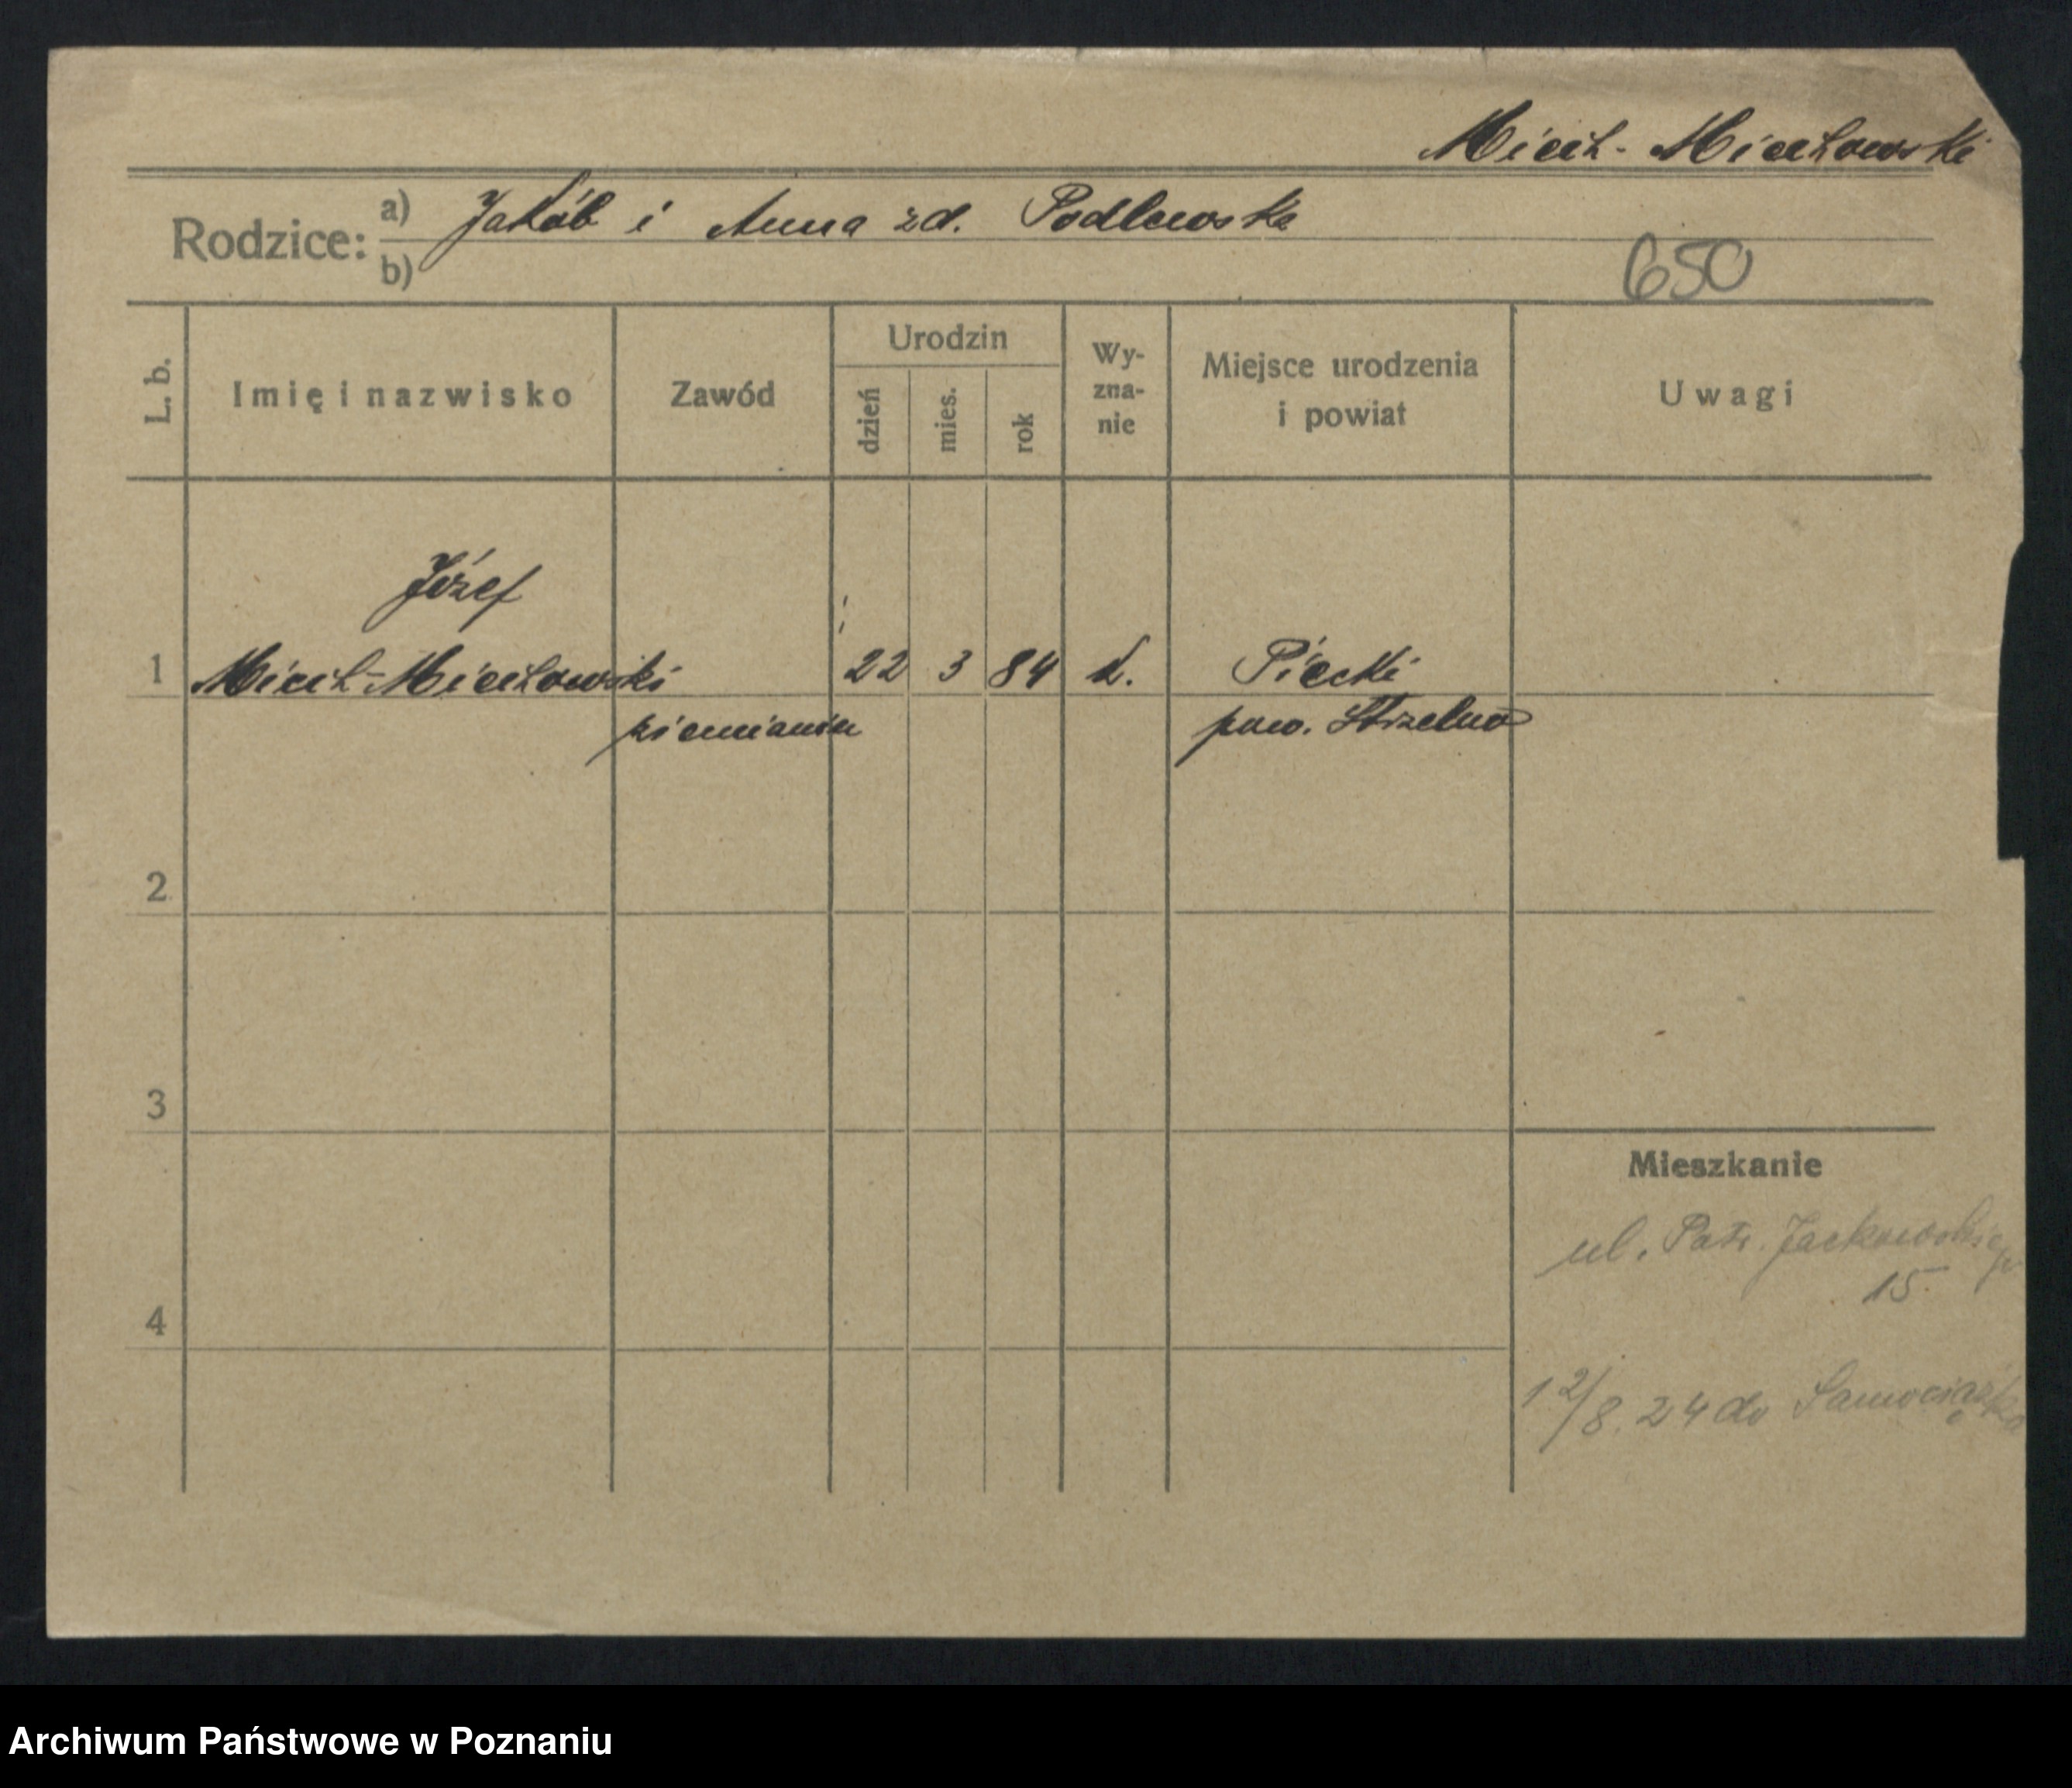 Miech-Miechowski
Rodzice: a) Jakób i Anna zd. Podlewska
b)
650
L. b.
Imię i nazwisko
Zawód
Urodzin
dzień
mies.
rok
Wy-
zna-
nie
Miejsce urodzenia
i powiat
Uwagi
Józef
1 Miech-Miechowski 22 3 84 k. Piecki
ziemianin pow. Strzelno
2
3
Mieszkanie
ul. Patr. Jackowskiego
15
4
12/8.24 do Samociążka
Archiwum Państwowe w Poznaniu